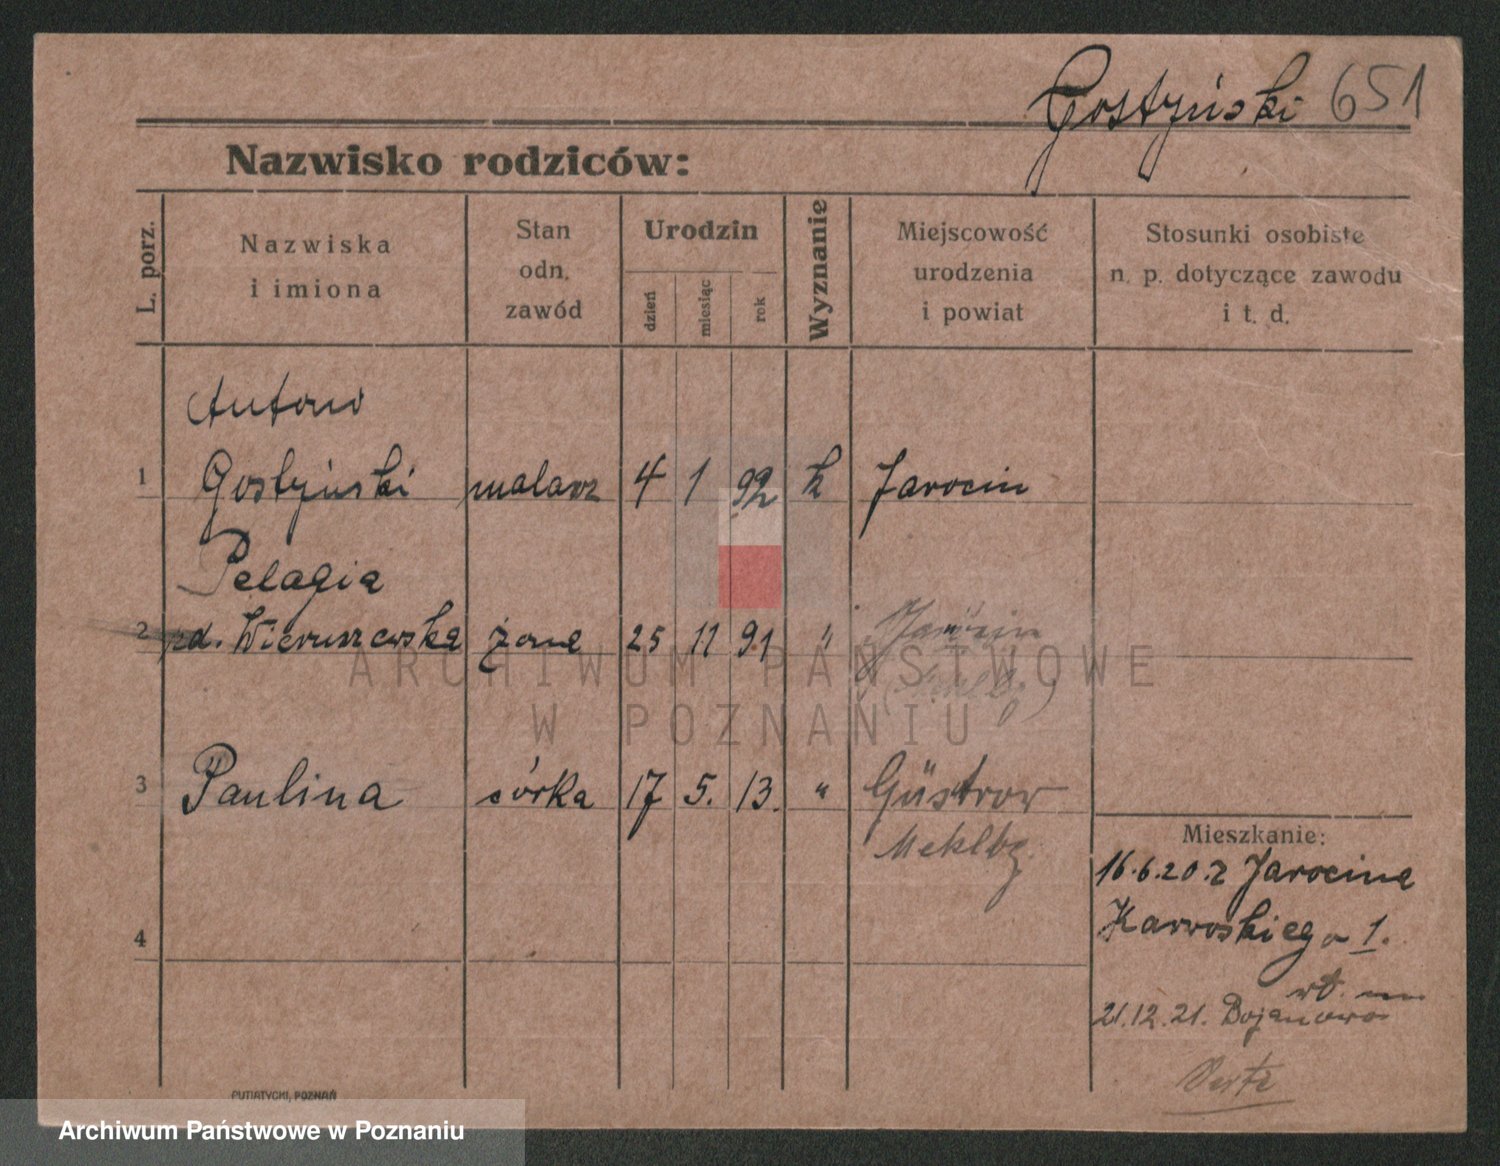 Gostyński 651
Nazwisko rodziców:
L. porz.
Nazwiska
i imiona
Stan
odn.
zawód
Urodzin
dzień
miesiąc
rok
Wyznanie
Miejscowość
urodzenia
i powiat
Stosunki osobiste
n. p. dotyczące zawodu
i t. d.
Antoni
1 Gostyński malarz 4 1 92 k Jarocin
Pelagia
2 rd. Wieruszewska żona 25 11 91 " Jarocin
3 Paulina córka 17 5. 13. " Güstrow
Meklbg.
Mieszkanie:
16.6.20. z Jarocina
Karwoskiego 1.
4
21.12.21. Bojanowo
Verte
PUTIATYCKI, POZNAŃ
ARCHIWUM PAŃSTWOWE
W POZNANIU
Archiwum Państwowe w Poznaniu